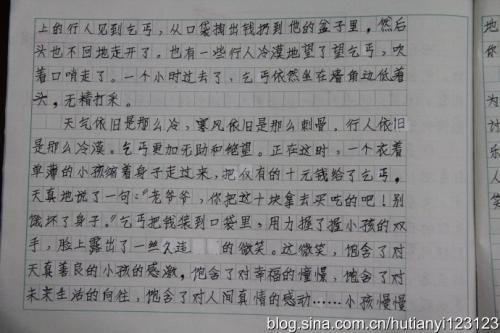 上的行人见到乞丐，从口袋掏出钱扔到他的盆子里，然后
头也不回地走开了。也有一些行人冷漠地望了望乞丐，吹
着口哨走了。一个小时过去了，乞丐依然坐在墙角边低着
头，无精打采。
天气依旧是那么冷，寒风依旧是那么刺骨。行人依旧
是那么冷漠。乞丐更加无助和绝望。正在这时，一个衣着
单薄的小孩缩着身子走过来，把仅有的十元钱给了乞丐。
天真地说了一句：“老爷爷，你把这十块拿去买吃的吧！别
饿坏了身子。”乞丐把钱装到口袋里，用力握了握小孩的双
手，脸上露出了一丝久违 的微笑。这微笑，饱含了对
天真善良的小孩的感激，饱含了对幸福的憧憬，饱含了对
未来生活的向往，饱含了对人间真情的感动……小孩慢慢
地
你
为
讨
乐
人
笑
blog.sina.com.cn/hutianyi123123